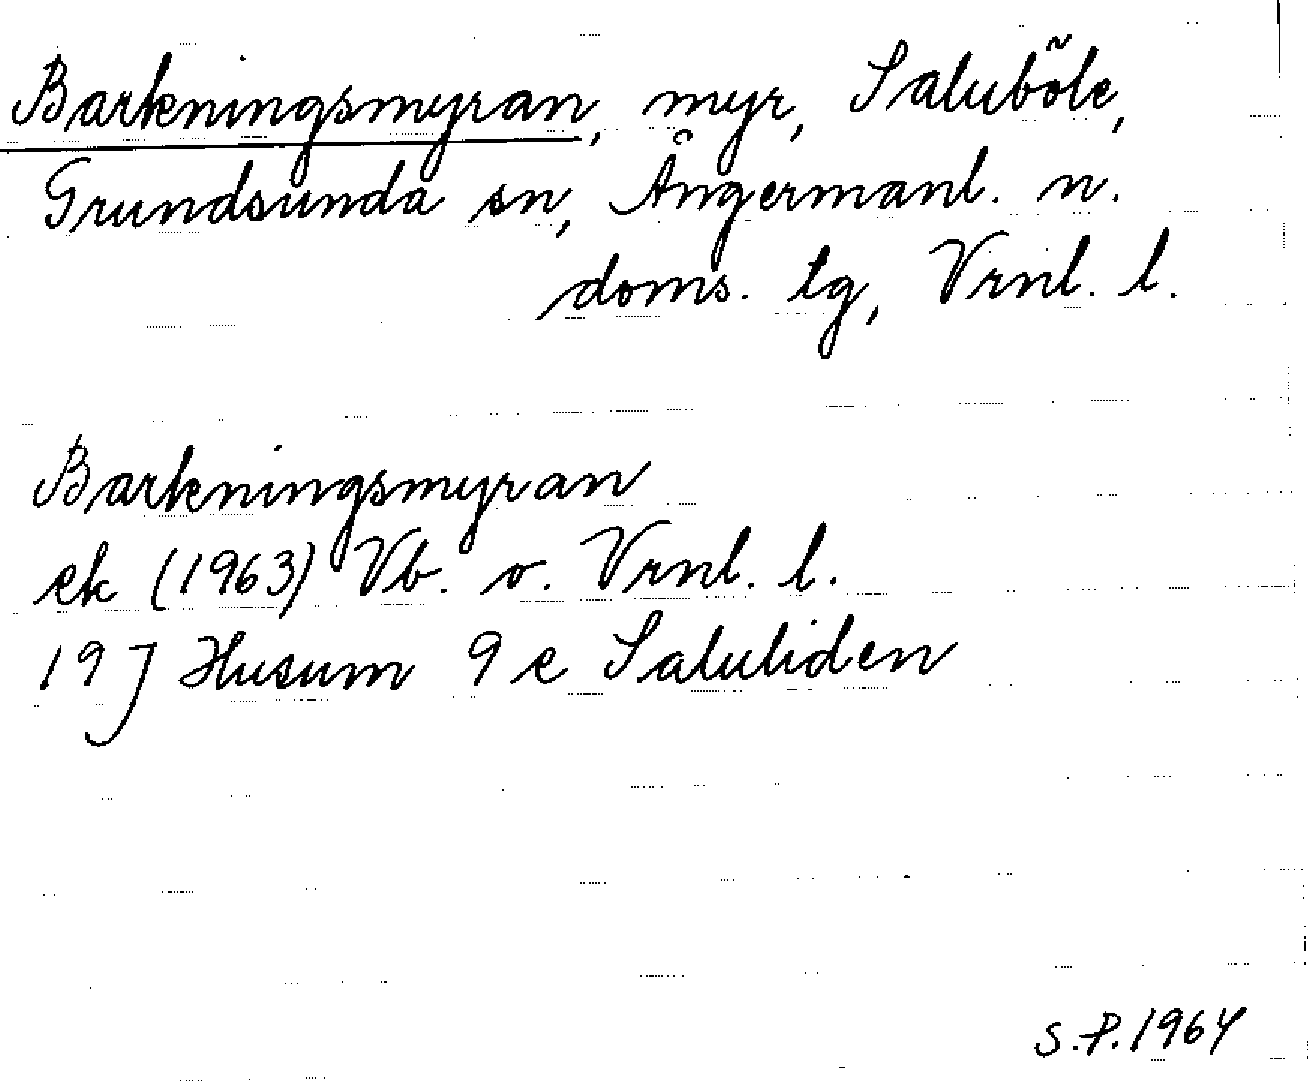 Barkningsmyran, myr, Saluböle,
Grundsunda sn, Ångermanl. n.
doms. tg, Vrnl. l.
Barkningsmyran
ek (1963) Vb. o. Vrnl. l.
19 J Husum 9 e Saluliden
S.P. 1964